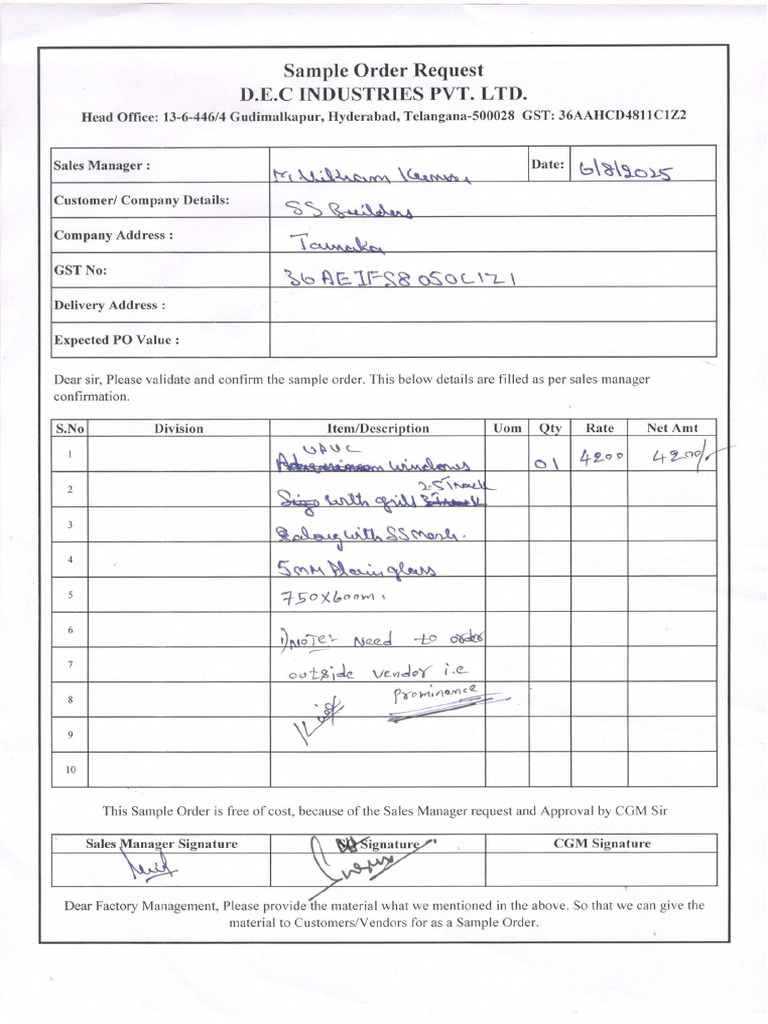 Sample Order Request
D.E.C INDUSTRIES PVT. LTD.
Head Office: 13-6-446/4 Gudimalkapur, Hyderabad, Telangana-500028 GST: 36AAHCD4811C1Z2
Sales Manager : M. Vikram Kumar Date: 6/8/2025
Customer/ Company Details: SS Builders
Company Address : Tarnaka
GST No: 36AEIFS8050C1Z1
Delivery Address :
Expected PO Value :
Dear sir, Please validate and confirm the sample order. This below details are filled as per sales manager
confirmation.
S.No Division Item/Description Uom Qty Rate Net Amt
UPVC
1 windows 01 4200 4200/-
2.5 Track
2 with grill 3 Track
3 along with SS mesh.
4 5MM Plain glass
5 750X600m.
6 1) NOTE:- Need to order
7 outside vendor i.e
8 Prominance
9
10
This Sample Order is free of cost, because of the Sales Manager request and Approval by CGM Sir
Sales Manager Signature Signature CGM Signature
Dear Factory Management, Please provide the material what we mentioned in the above. So that we can give the
material to Customers/Vendors for as a Sample Order.